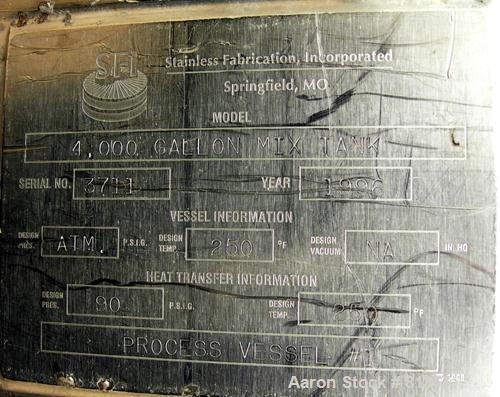 SFI
Stainless Fabrication, Incorporated
Springfield, MO
MODEL
4,000 GALLON MIX TANK
SERIAL NO. 3711 YEAR 1996
VESSEL INFORMATION
DESIGN PRES. ATM. P.S.I.G. DESIGN TEMP. 250 °F DESIGN VACUUM NA IN. HG
HEAT TRANSFER INFORMATION
DESIGN PRES. 90 P.S.I.G. DESIGN TEMP. 350 °F
PROCESS VESSEL #1
Aaron Stock #